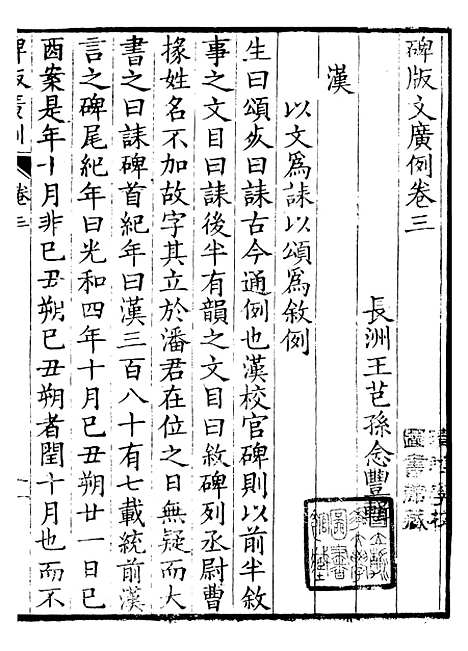 碑版文廣例卷三
長洲王芑孫念豐
漢
以文爲誄以頌爲敘例
生曰頌死曰誄古今通例也漢校官碑則以前半敘
事之文目曰誄後半有韻之文目曰敘碑列丞尉曹
掾姓名不加故字其立於潘君在位之日無疑而大
書之曰誄碑首紀年曰漢三百八十有七載統前漢
言之碑尾紀年曰光和四年十月己丑朔廿一日己
酉案是年十月非己丑朔己丑朔者閏十月也而不
碑版廣例
卷三
圖書館藏